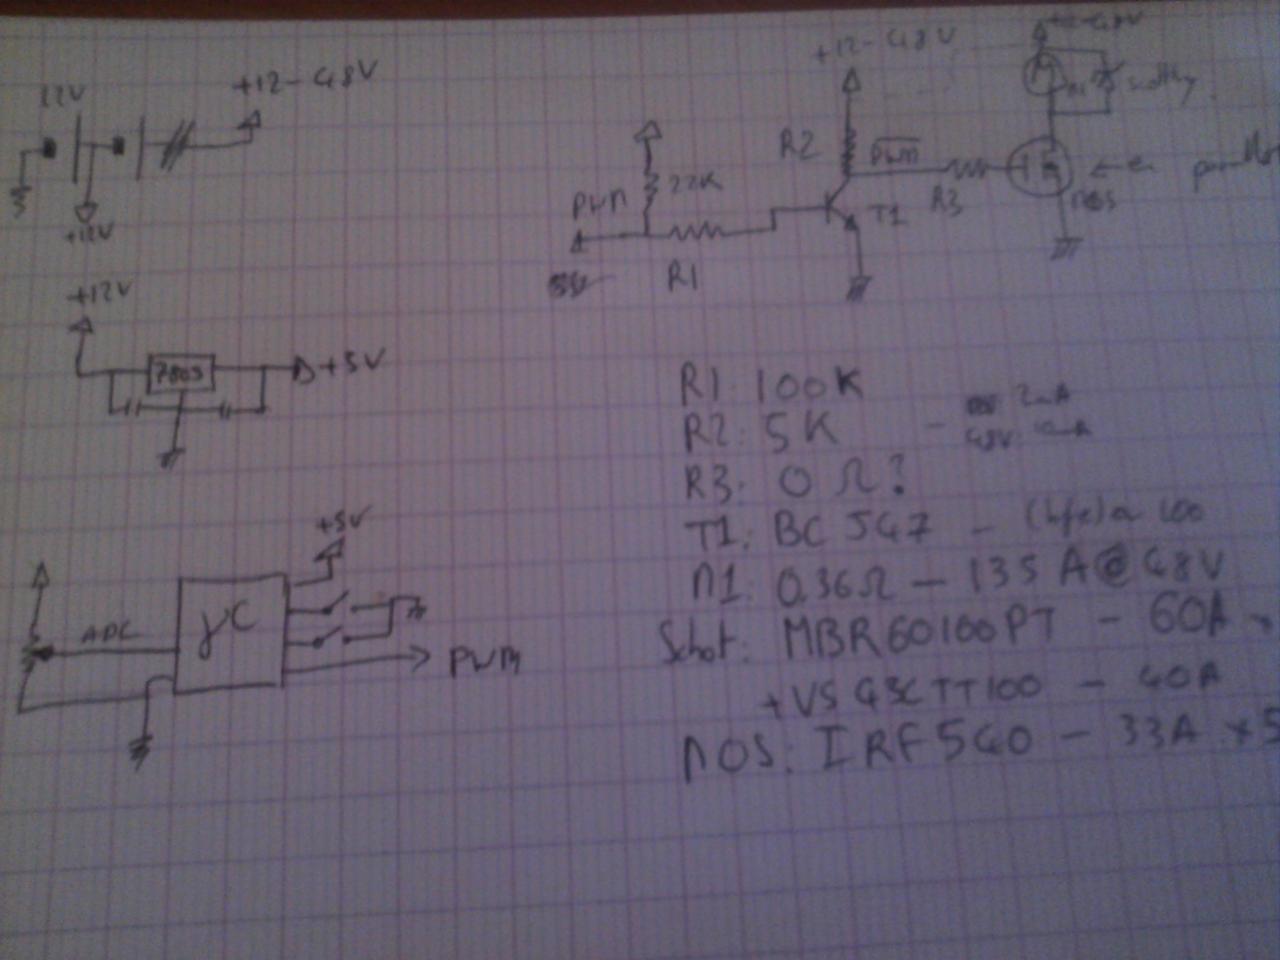 12V
+12-48V
+12V
+12V
7805
+5V
+5V
ADC
µC
PWM
+12-48V
R2
PWM
22K
PWM
R3
T1
R1
MOS
R1: 100K
R2: 5K - 2mA
48V 10mA
R3: 0 Ω?
T1: BC 547 - (hfe) 100
M1: 0.36Ω - 135 A@48V
Schot: MBR60100PT - 60A
+VS 43CTT100 - 40A
MOS: IRF540 - 33A x5